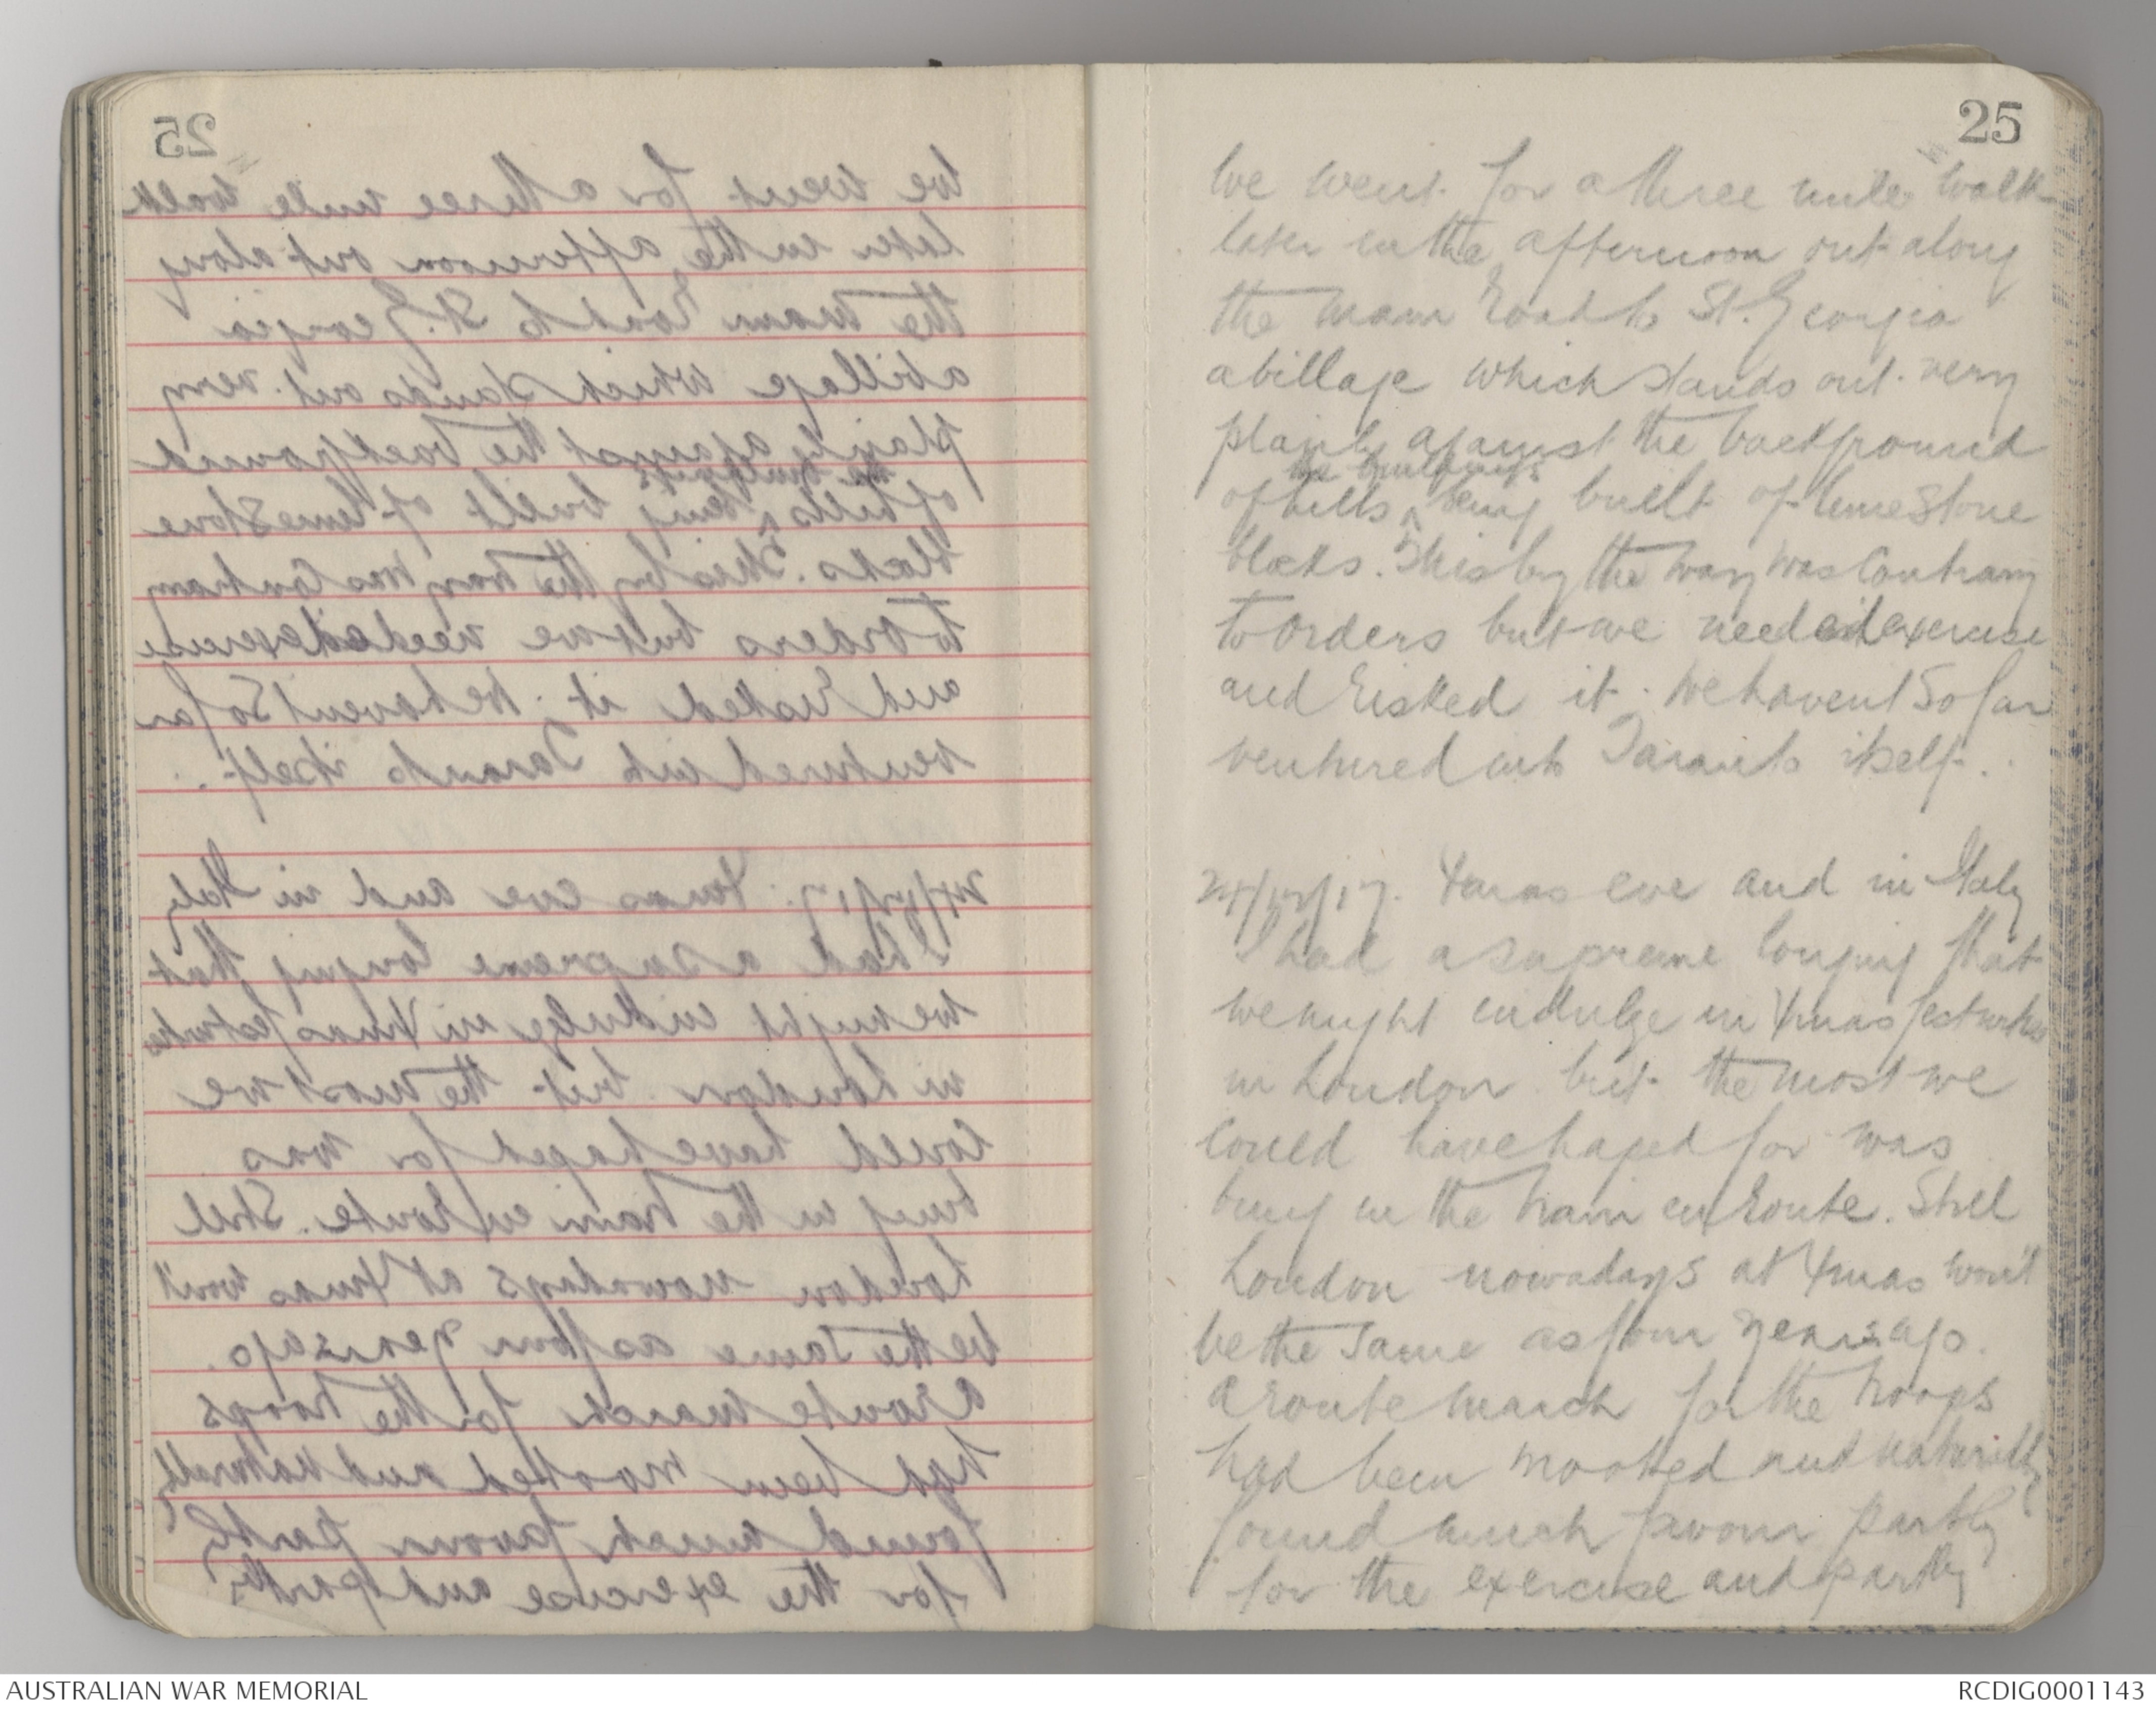 25
We went for a three mile walk
later in the afternoon out along
the main Road to St. Georgia
a village which stands out very
plainly against the background
the buildings
of hills ^ being built of limestone
blocks. This by the way was contrary
to orders but we needed exercise
and risked it. We havent so far
ventured into Taranto itself.
24/12/17. Xmas eve and in Italy
I had a supreme longing that
we might indulge in Xmas festivities
in London but the most we
could have hoped for was
being in the train en route. Still
London nowadays at Xmas won't
be the same as four years ago.
A route march for the troops
had been mooted and naturally
found much favour partly
for the exercise and partly
AUSTRALIAN WAR MEMORIAL
RCDIG0001143